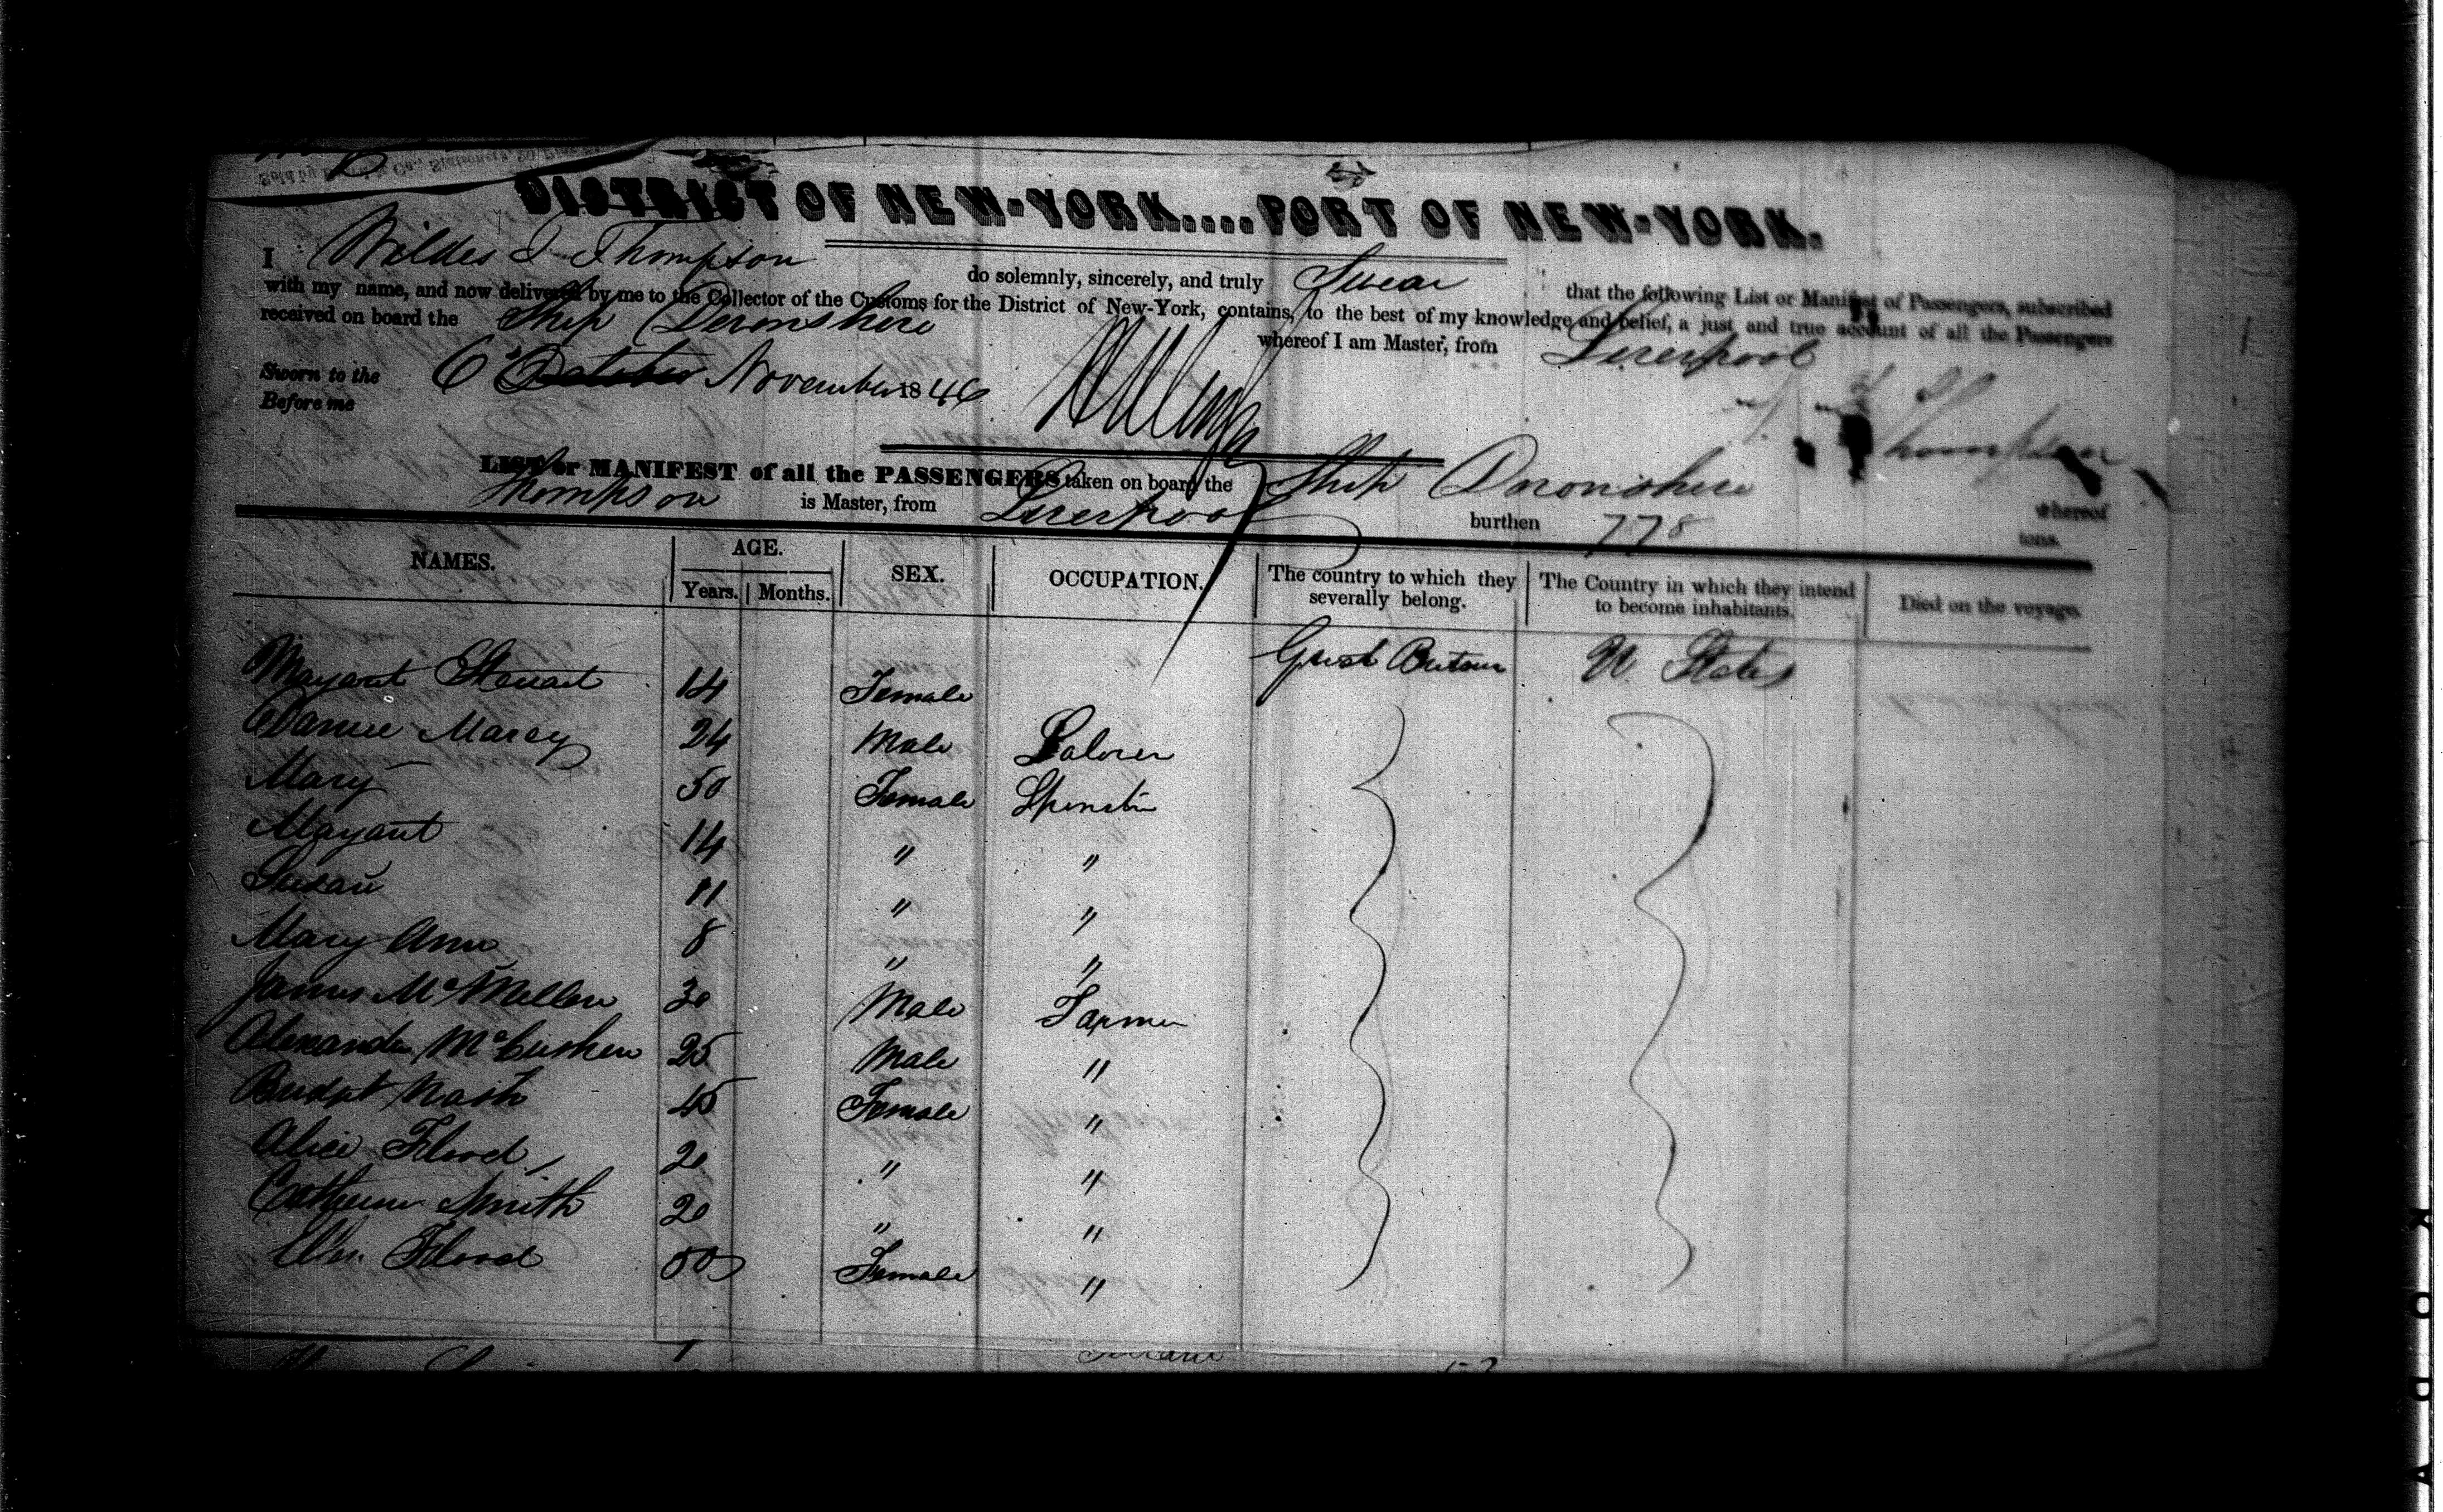 DISTRICT OF NEW-YORK....PORT OF NEW-YORK.
I Wildes Thompson do solemnly, sincerely, and truly Swear that the following List or Manifest of Passengers, subscribed
with my name, and now delivered by me to the Collector of the Customs for the District of New-York, contains, to the best of my knowledge and belief, a just and true account of all the Passengers
received on board the Ship Devonshire whereof I am Master, from Liverpool
Sworn to the 6 November 1846
Before me
Thompson
LIST or MANIFEST of all the PASSENGERS taken on board the Ship Devonshire whereof
Thompson is Master, from Liverpool burthen 778 tons.
NAMES. AGE. SEX. OCCUPATION. The country to which they severally belong. The Country in which they intend to become inhabitants. Died on the voyage.
Years. Months.
Margaret Stewart 14 Female Great Britain U. States
Daniel Marcy 24 Male Laborer
Mary 50 Female Spinster
Margaret 14 " "
Susan 11 " "
Mary Ann 8 " "
James McMillen 30 Male Farmer
Alexander 25 Male "
Bridget Nash 45 Female "
Alice Flood 20 " "
Catherine Smith 20 " "
Flood 50 Female "